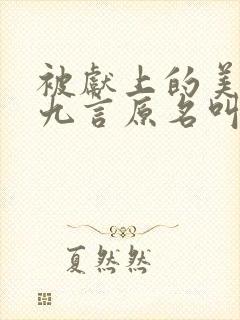 被献上的美
九言原名叫
夏然然